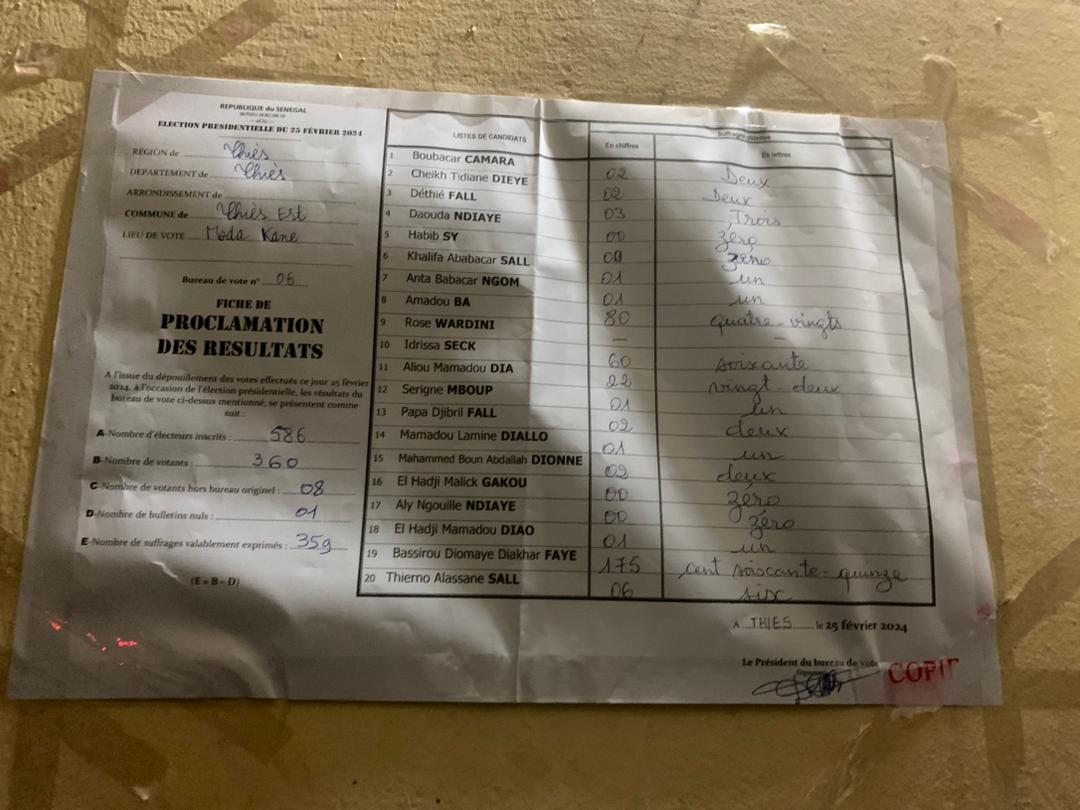 REPUBLIQUE du SENEGAL
ELECTION PRESIDENTIELLE DU 25 FÉVRIER 2024
REGION de Thiès
DEPARTEMENT de Thiès
ARRONDISSEMENT de
COMMUNE de Thiès Est
LIEU DE VOTE Moda Kane
Bureau de vote n° 06
FICHE DE
PROCLAMATION
DES RESULTATS
A l'issue du dépouillement des votes effectués ce jour 25 février
2024, à l'occasion de l'élection présidentielle, les résultats du
bureau de vote ci-dessus mentionné, se présentent comme
suit :
A-Nombre d'électeurs inscrits : 586
B-Nombre de votants : 360
C-Nombre de votants hors bureau originel : 08
D-Nombre de bulletins nuls : 01
E-Nombre de suffrages valablement exprimés : 359
(E = B – D)
LISTES DE CANDIDATS Suffrages obtenus
En chiffres En lettres
1 Boubacar CAMARA 02 Deux
2 Cheikh Tidiane DIEYE 02 Deux
3 Déthié FALL 03 Trois
4 Daouda NDIAYE 00 zéro
5 Habib SY 00 zéro
6 Khalifa Ababacar SALL 01 un
7 Anta Babacar NGOM 01 un
8 Amadou BA 80 quatre-vingts
9 Rose WARDINI — —
10 Idrissa SECK 60 soixante
11 Aliou Mamadou DIA 22 vingt-deux
12 Serigne MBOUP 01 un
13 Papa Djibril FALL 02 deux
14 Mamadou Lamine DIALLO 01 un
15 Mahammed Boun Abdallah DIONNE 02 deux
16 El Hadji Malick GAKOU 00 zéro
17 Aly Ngouille NDIAYE 00 zéro
18 El Hadji Mamadou DIAO 01 un
19 Bassirou Diomaye Diakhar FAYE 175 cent soixante-quinze
20 Thierno Alassane SALL 06 six
A THIES le 25 février 2024
Le Président du bureau de vote